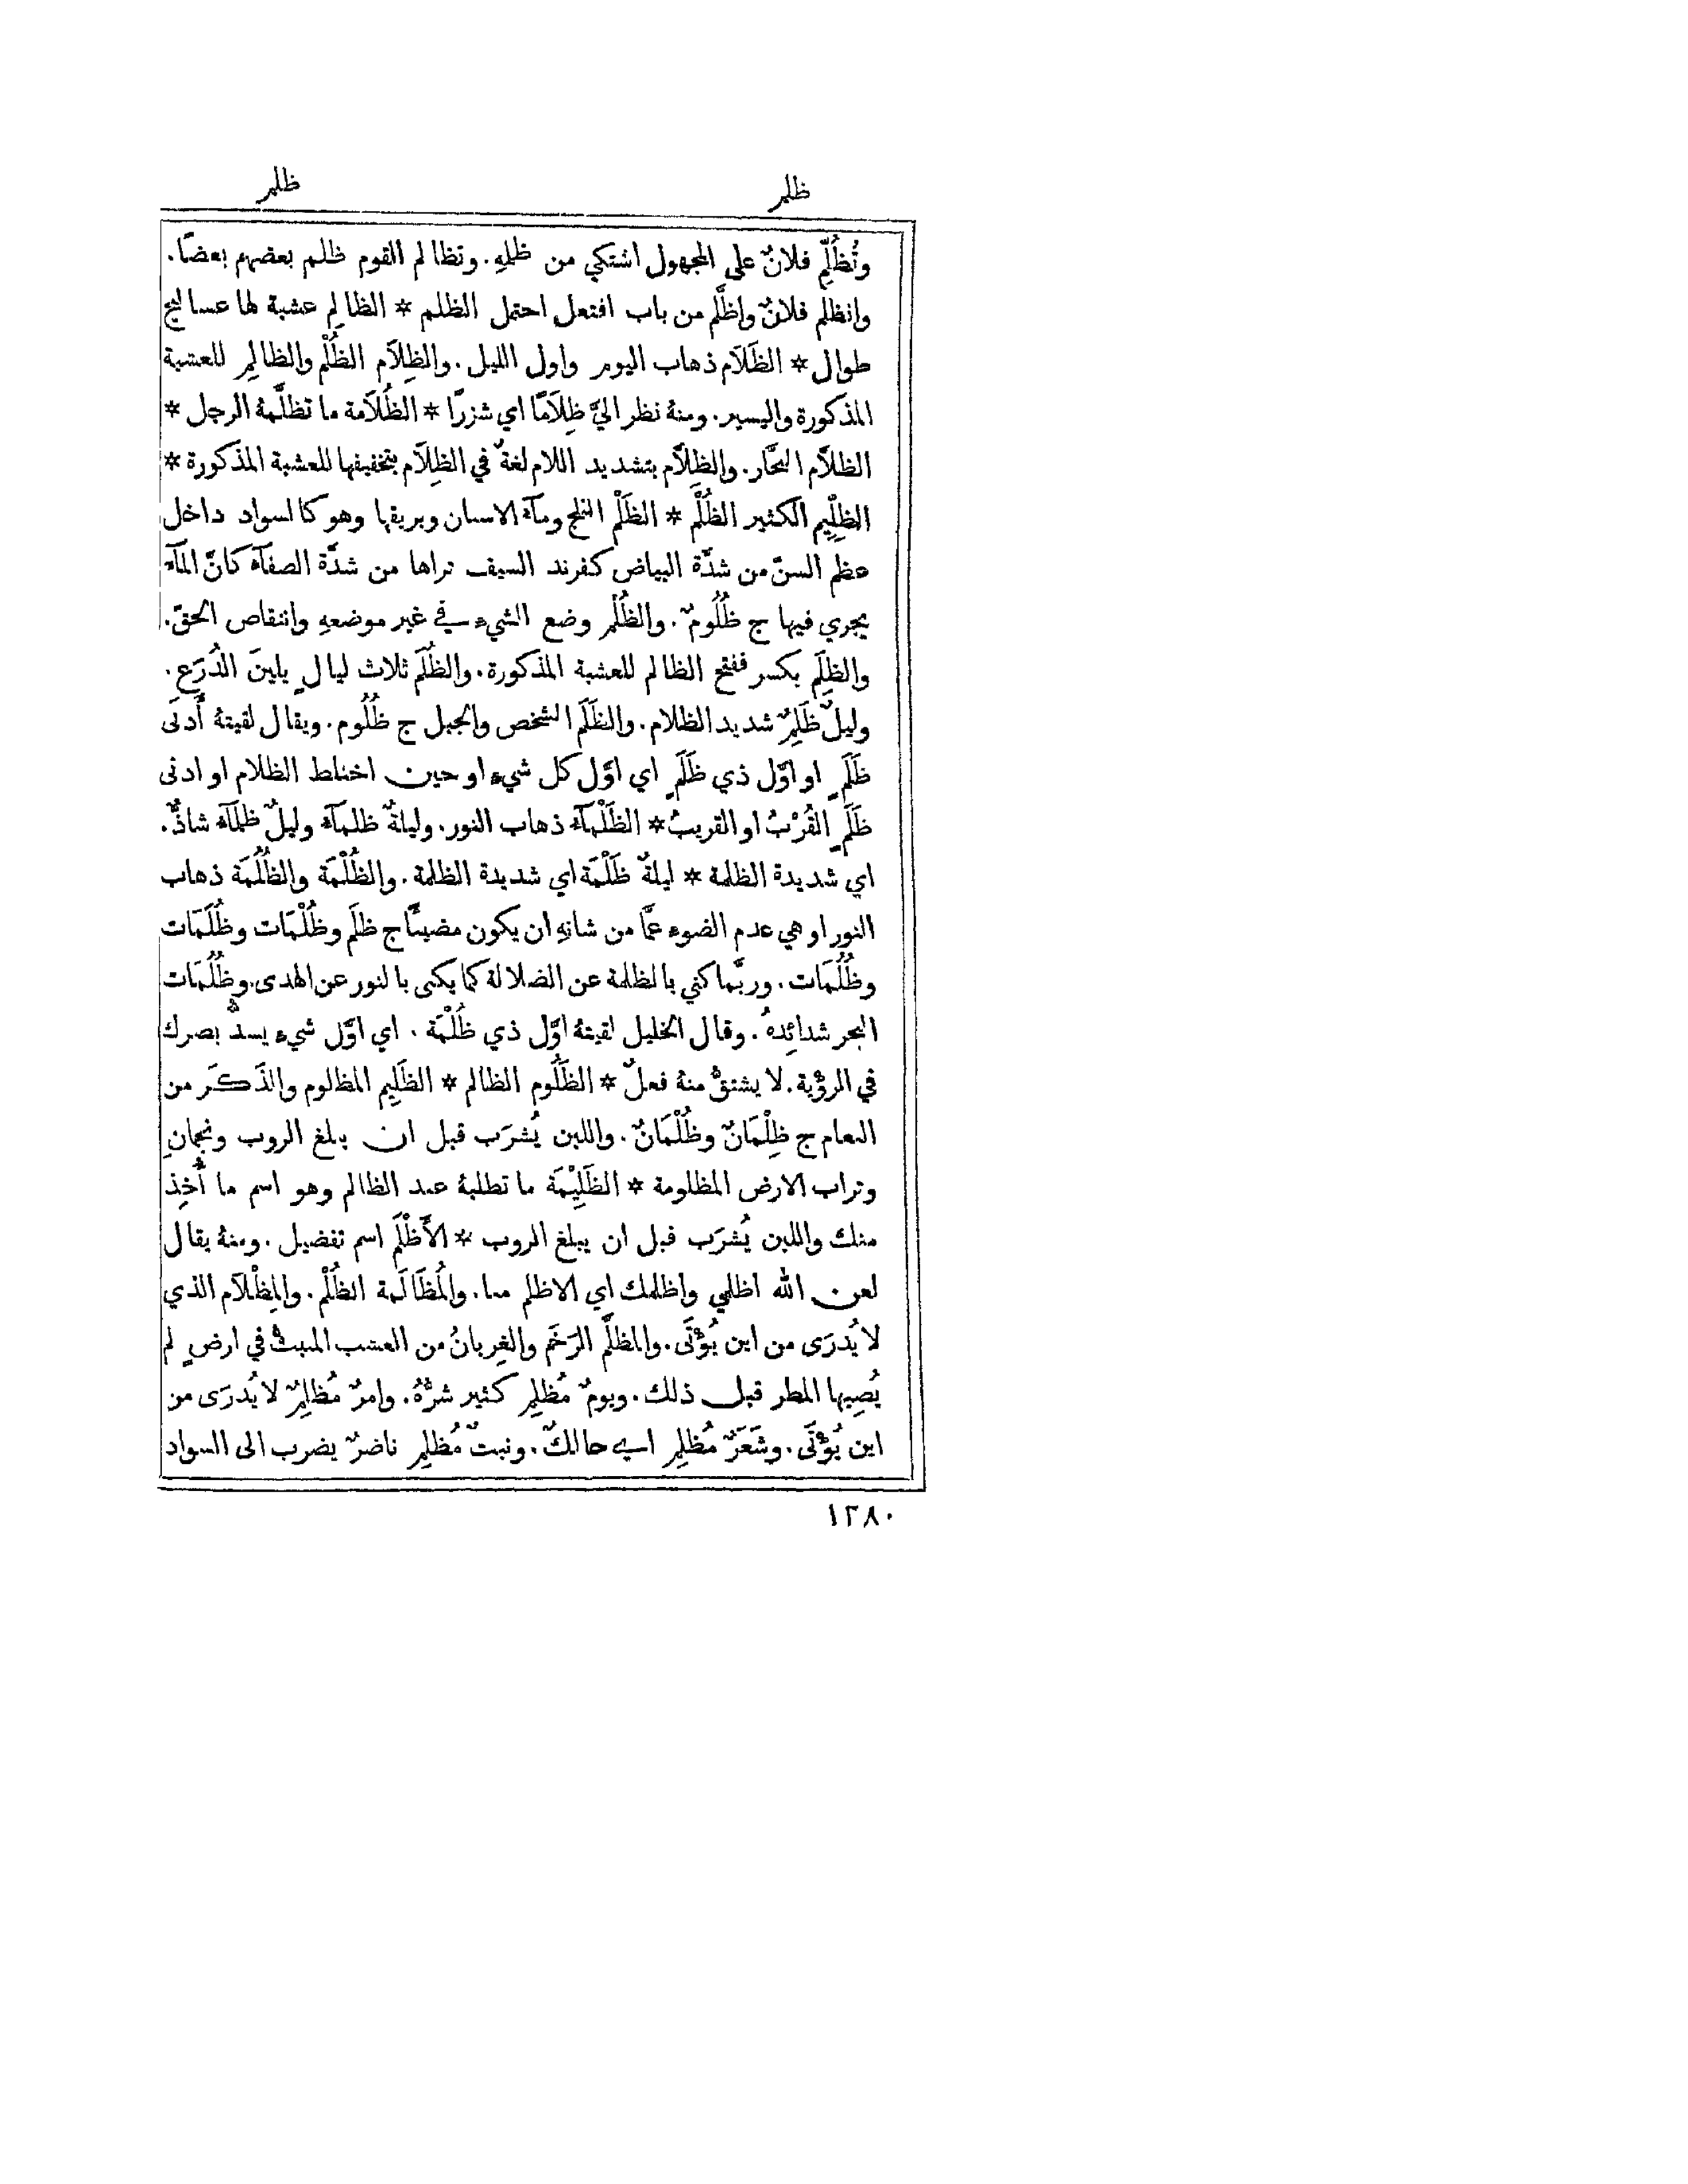 ظلم ظلم
وتُظُلِّم فلانٌ على المجهول اشتكي من ظلمهِ. وتظالم القوم ظلم بعضهم بعضًا.
وانظلم فلانٌ واظَّلم من باب افتعل احتمل الظلم * الظالِم عشبة لها عساليج
طوال * الظَلَام ذهاب اليوم واول الليل. والظِلاَم الظُلْم والظالِم للعشبة
المذكورة واليسير. ومنهُ نظر اليَّ ظِلاَمًا اي شزرًا * الظُلاَمة ما تظلَّمهُ الرجل *
الظلاَّم النحَّار. والظِلاَّم بتشديد اللام لغةٌ في الظِلاَم بتخفيفها للعشبة المذكورة *
الظِلِّيم الكثير الظُلْم * الظَلْم الثلج ومآء الاسنان وبريقها وهو كالسواد داخل
عظم السنّ من شدَّة البياض كفرند السيف تراها من شدَّة الصفآء كانَّ المآء
يجري فيها ج ظُلُومٌ. والظُلْم وضع الشيء في غير موضعهِ وانتقاص الحقّ.
والظِلَم بكسر ففتح الظالم للعشبة المذكورة. والظُلَم ثلاث ليالٍ يلينَ الدُرَع.
وليلٌ ظَلِمٌ شديد الظلام. والظَلَم الشخص والجبل ج ظُلُوم. ويقال لقيتهُ أَدنَى
ظَلَمٍ او اوَّل ذي ظَلَمٍ اي اوَّل كل شيء او حين اختلط الظلام او ادنى
ظَلَمٍ القُرْبُ او القريبُ * الظَلْمآء ذهاب النور. وليلةٌ ظلمآء وليلٌ ظلمآء شاذٌّ.
اي شديدة الظلمة * ليلةٌ ظَلْمَة اي شديدة الظلمة. والظُلْمَة والظُلُمَة ذهاب
النور او هي عدم الضوء عمَّا من شانهِ ان يكون مضيئًا ج ظلَم وظُلْمَات وظُلَمَات
وظُلُمَات. وربَّما كني بالظلمة عن الضلالة كما يكنى بالنور عن الهدى. وظُلُمَات
البحر شدائِدهُ. وقال الخليل لقيتهُ اوَّل ذي ظُلْمَة. اي اوَّل شيء يسدُّ بصرك
في الرؤية. لا يشتقُّ منهُ فعلٌ * الظَلُوم الظالم * الظَلِيم المظلوم والذَكَر من
النعام ج ظِلْمَانٌ وظُلْمَانٌ. واللبن يُشرَب قبل ان يبلغ الروب ونجمانِ
وتراب الارض المظلومة * الظَلِيْمَة ما تطلبهُ عند الظالم وهو اسم ما أُخِذ
منك واللبن يُشرَب قبل ان يبلغ الروب * الأَظْلَم اسم تفضيل. ومنهُ يقال
لعن الله اظلمي واظلمك اي الاظلم منا. والمُظَالَمة الظُلْم. والمِظْلاَم الذي
لا يُدرَى من اين يُؤْتَى. والمظلَّم الرَخَم والغِربانُ من العشب المنبثُّ في ارضٍ لم
يُصِبها المطر قبل ذلك. ويومٌ مُظلِم كثير شرُّهُ. وامرٌ مُظلِمٌ لا يُدرَى من
اين يُؤْتَى. وشَعَرٌ مُظلِم اي حالكٌ. ونبتٌ مُظلِم ناضرٌ يضرب الى السواد
١٣٨٠